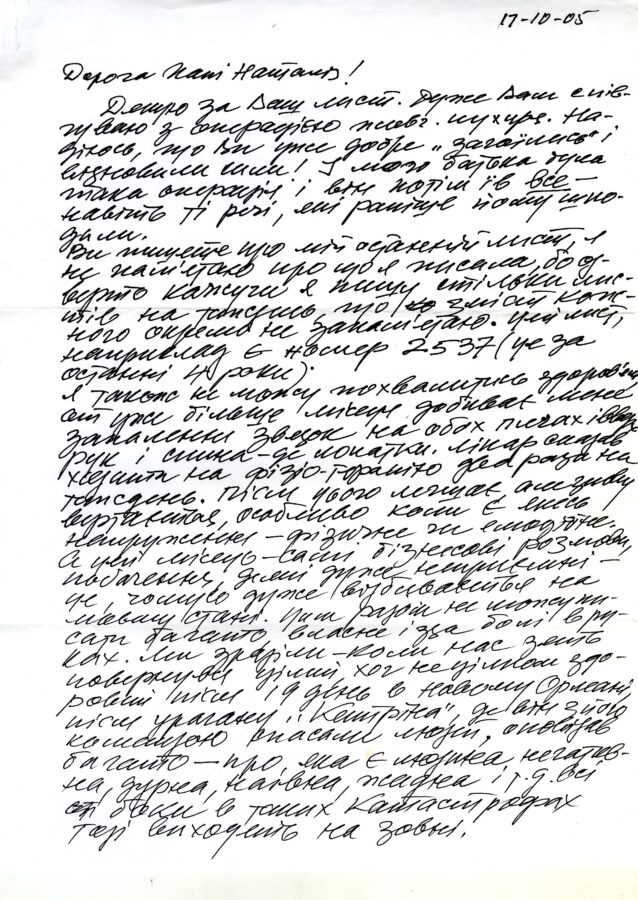 17-10-05
Дорога Пані Наталю!
Дякую за Ваш лист. Дуже Вам спів-
чуваю з операцією жовч. міхура. На-
діюсь, що Ви уже добре „загоїлись" і
відновили сили! У мого батька була
така операція і він потім їв все —
навіть ті речі, які раніше йому шко-
дили.
Ви пишете про мій останній лист, я
не памʼятаю про що я писала, бо од-
верто кажучи я пишу стільки лис-
тів на тиждень, що змісту кож-
ного окремо не запамʼятаю. Цей лист,
наприклад є номер 2537 (це за
останні 4 роки).
Я також не можу похвалитись здоровʼям
от уже більше місяця добиває мене
запалення звʼязок на обох плечах і
рук і спина - де лопатки. Лікар сказав
ходити на фізіо-терапію два рази на
тиждень. Після цього легшає, але знову
вертається, особливо коли є якесь
напруження - фізичне чи емоційне.
А цей місяць - самі бізнесові розмови,
побачення, деякі дуже неприємні -
це, чомусь дуже відбивається на
моєму стані. Цим разом не можу пи-
сати багато, власне із за болі в ру-
ках. Ми зраділи - коли нас зять
повернувся цілий, хоч не цілком здо-
ровий після 19 день в Новому Орлеані,
після урагану „Катріна", де він з його
командою спасали людей, оповідав
багато - про, яка є людина, негатив-
на, дурна, наївна, жадна і т.д. всі
ті боки в таких катастрофах
тоді виходять на зовні.